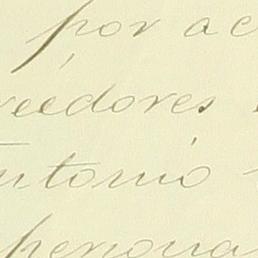 por ac
reedores
ntonio
persona